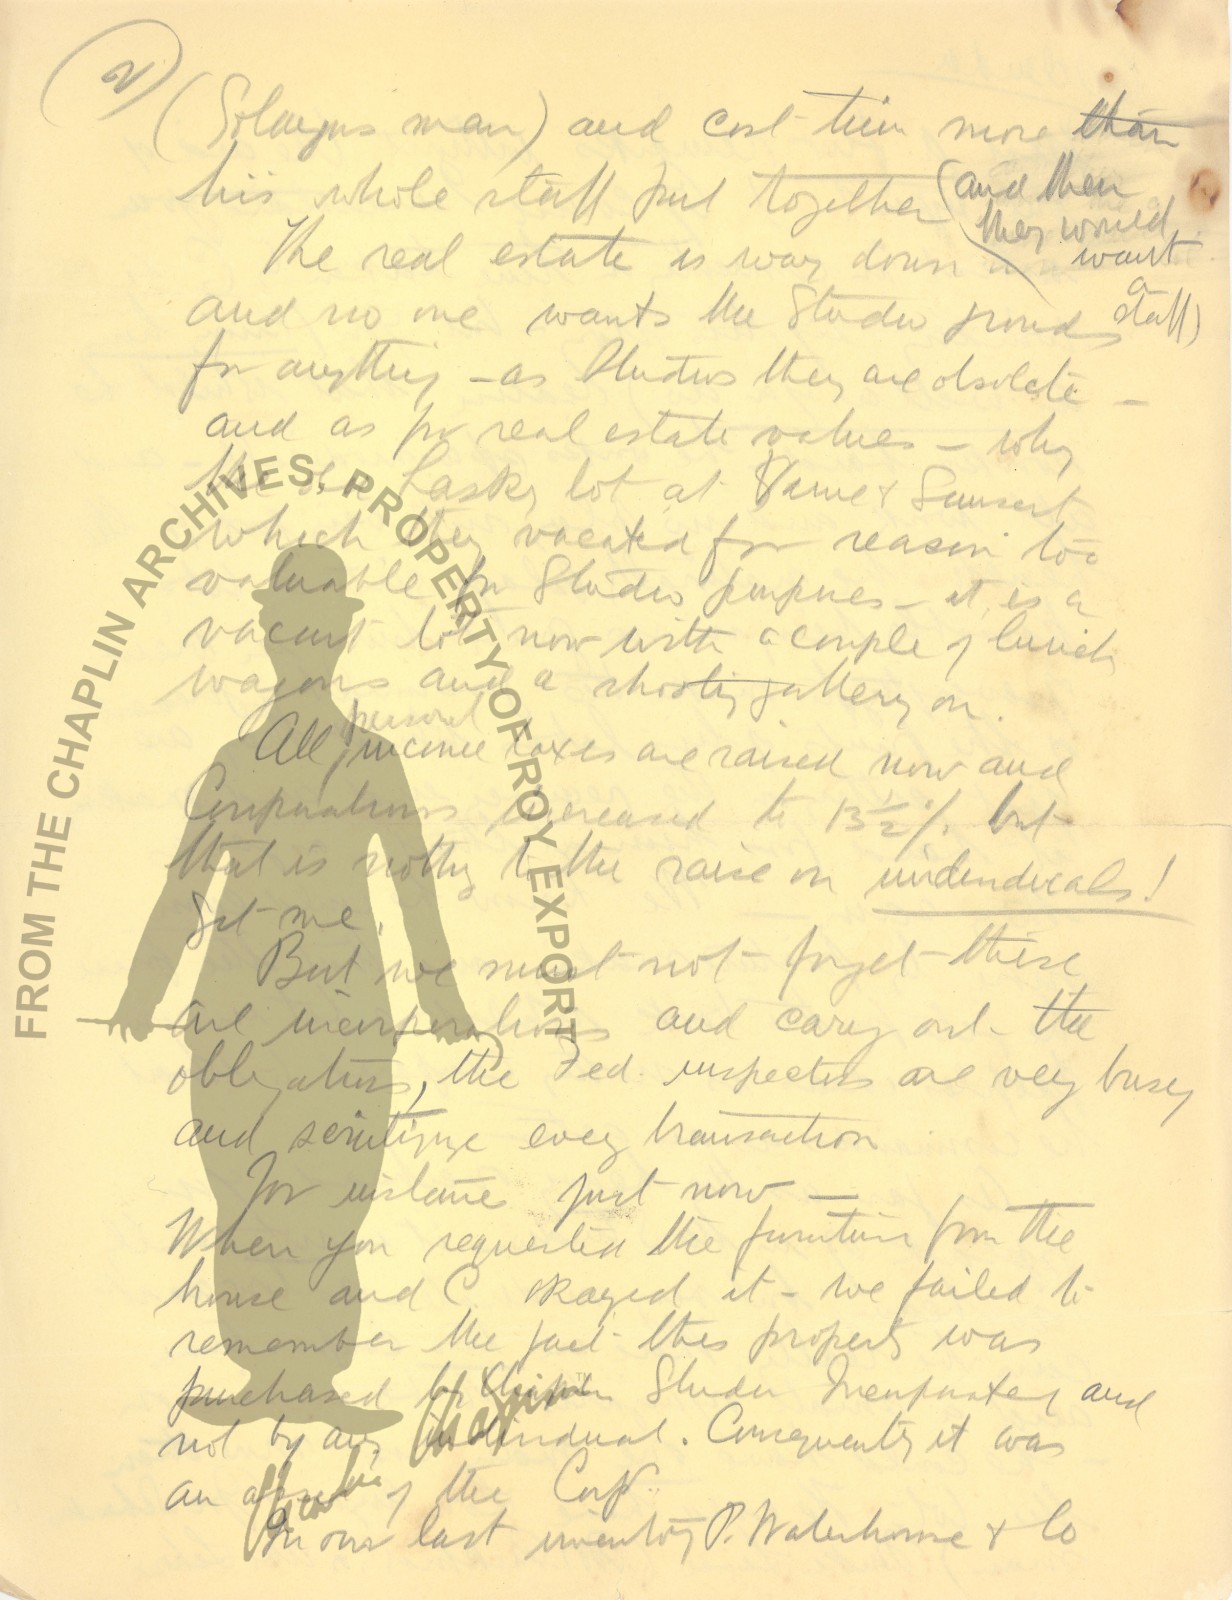 2)
( man) and cost him more than
his whole staff put together (and then
they would
want
a
staff)
The real estate is way down
and no one wants the Studio grounds
for anything – as Studios they are obsolete –
and as for real estate values – why
the old Lasky lot at Vine & Sunset
which they vacated for reason too
valuable for Studio purposes – it is a
vacant lot now with a couple of lunch
wagons and a shooting gallery on.
All personal income taxes are raised now and
Corporations increased to 13½% but
that is nothing to the raise on individuals!
Get me.
But we must not forget these
are incorporations and carry out the
obligations, the Fed. inspectors are very busy
and scrutinize every transaction
For instance just now –
When you requested the furniture from the
house and C. okayed it – we failed to
remember the fact this property was
purchased by Chaplin Studio Incorporated and
not by any individual. Consequently it was
an asset of the Corp.
In our last inventory P. Waterhouse & Co
FROM THE CHAPLIN ARCHIVES, PROPERTY OF ROY EXPORT
Charlie Chaplin